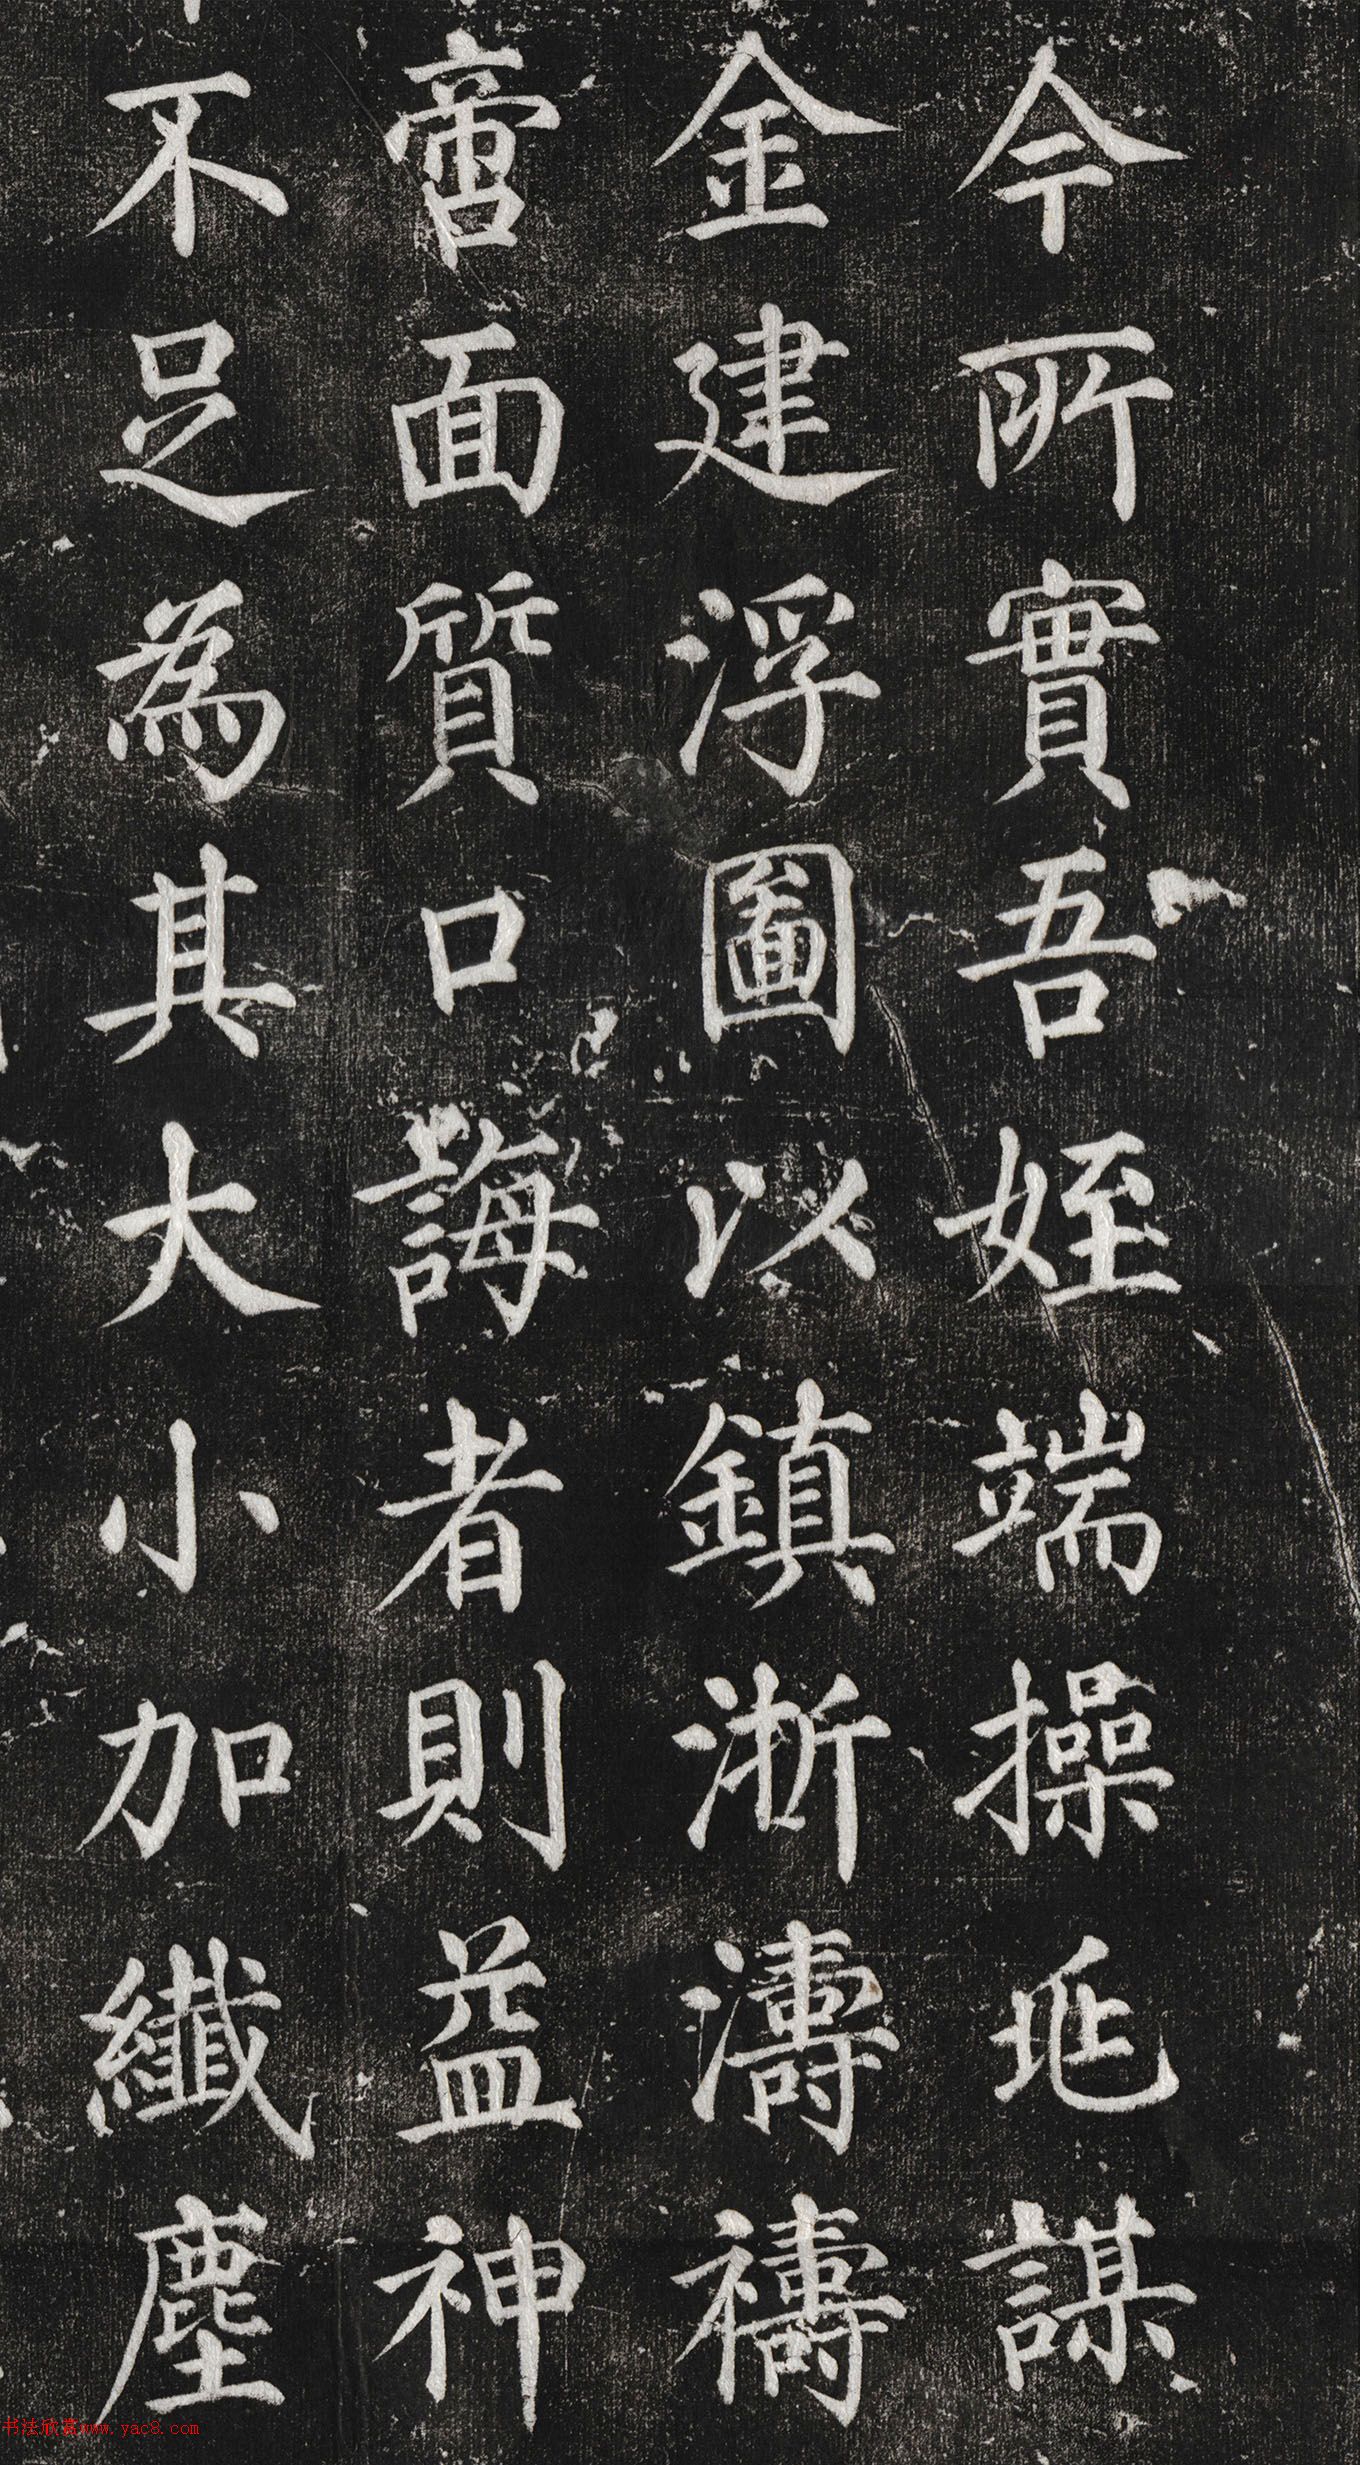 今所實吾姪端操兆謀
金建浮圖以鎮浙濤禱
嘗面質口誨者則益神
不足為其大小加纖塵
书法欣赏www.yac8.com